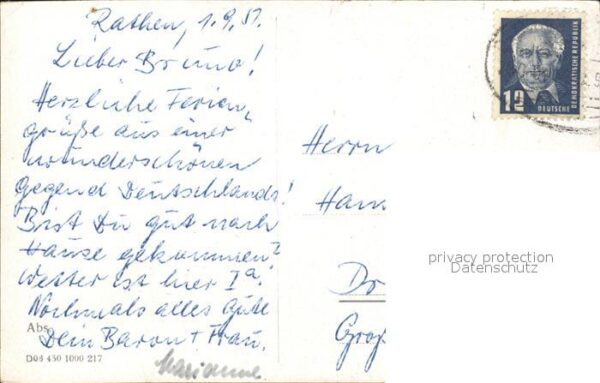 Rathen, 1.9.51.
Lieber Bruno!
Herzliche Ferien-
grüße aus einer
wunderschönen
Gegend Deutschlands!
Bist Du gut nach
Hause gekommen?
Wetter ist hier Ia!
Nochmals alles Gute
Dein Baron + Frau.
Marianne
Abs.
D08 450 1000 217
12
DEUTSCHE
DEMOKRATISCHE REPUBLIK
Herrn
Han
Dr
Groß
privacy protection
Datenschutz